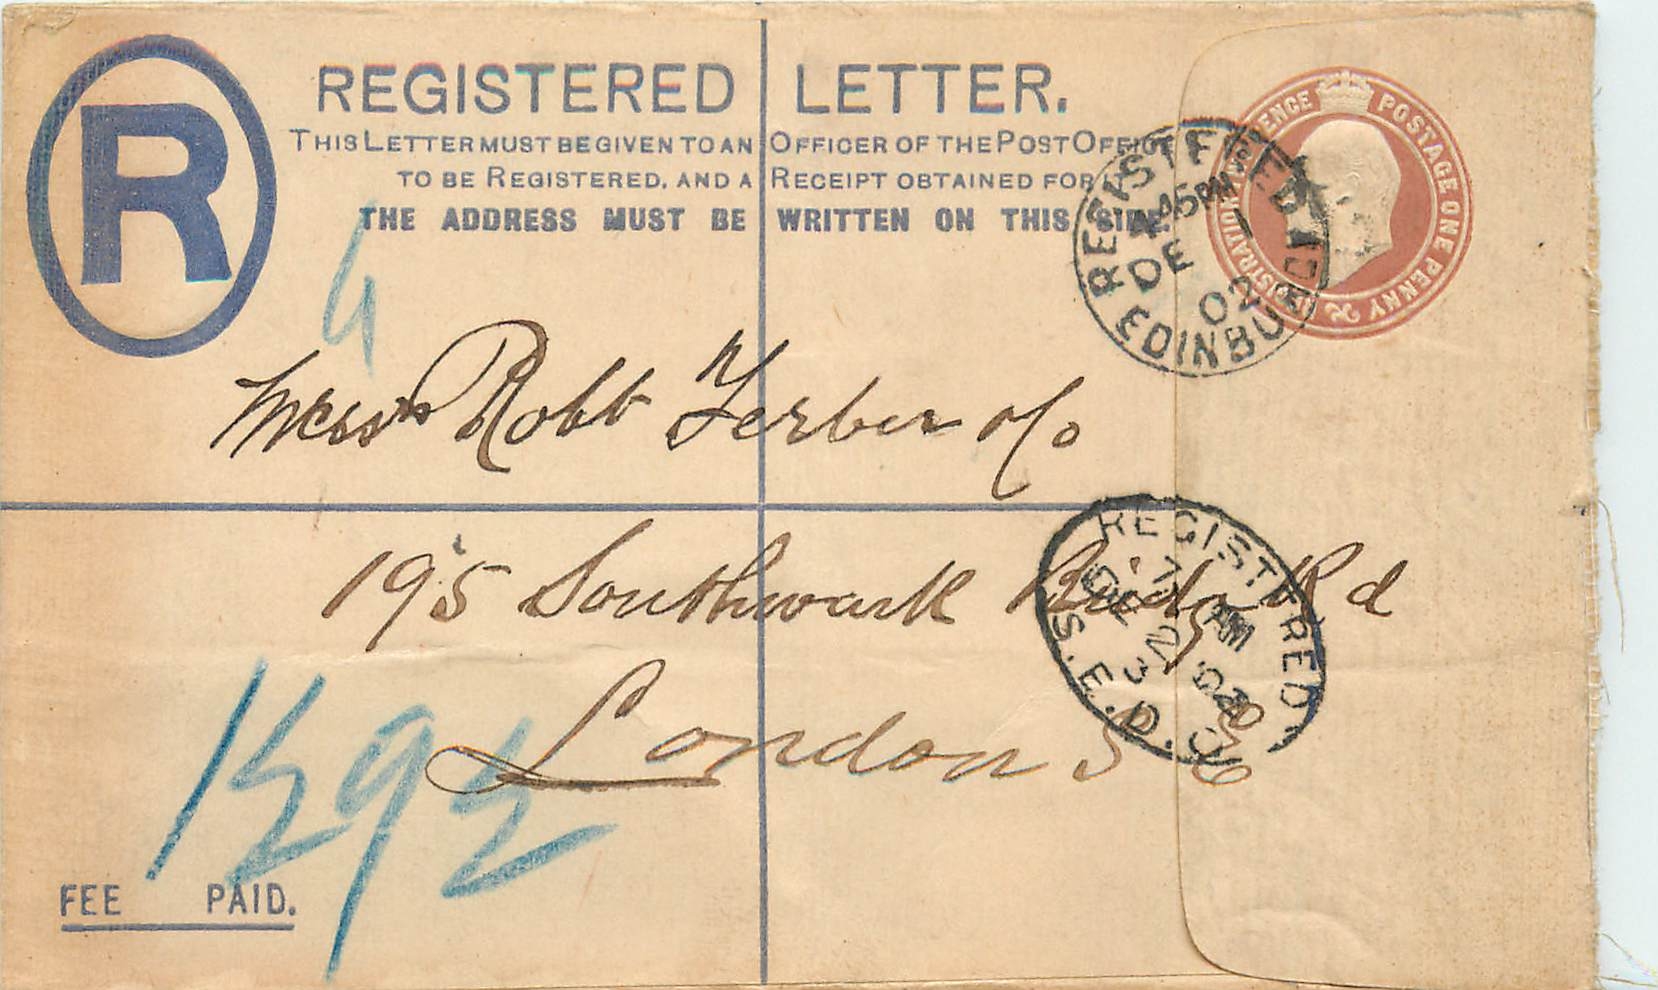 R
REGISTERED LETTER.
THIS LETTER MUST BE GIVEN TO AN OFFICER OF THE POST OFFICE
TO BE REGISTERED, AND A RECEIPT OBTAINED FOR IT.
THE ADDRESS MUST BE WRITTEN ON THIS SIDE
POSTAGE ONE PENNY & REGISTRATION TWOPENCE
REGISTERED EDINBURGH
4.45PM
DE 1
02
Messrs Robb Ferber &Co
195 Southwark Bridg Rd
London S E
REGISTERED S.E.D.O
7 AM
DE 2 02
FEE PAID.